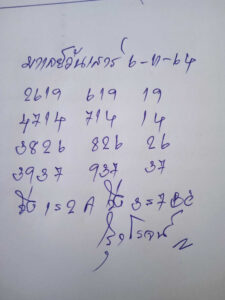 มาเลย์วันเสาร์ 6-11-64
2619 619 19
4714 714 14
3826 826 26
3937 937 37
1=2 A 3=7 BC